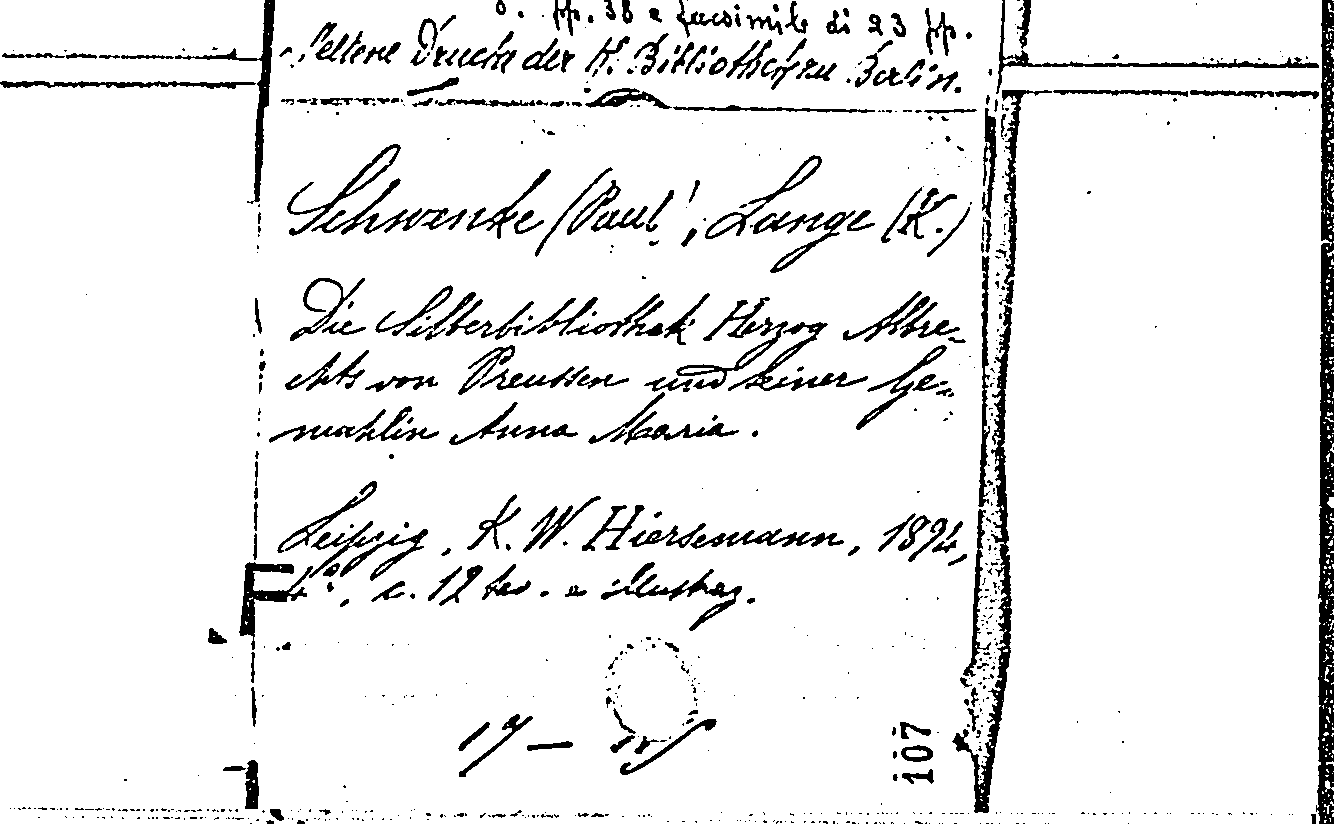 8. pp. 38 e facsimile di 23 pp.
Seltene Drucke der K. Bibliothek zu Berlin.
Schwenke (Paul), Lange (K.)
Die Silberbibliothek Herzog Albre-
chts von Preussen und seiner Ge-
mahlin Anna Maria.
Leipzig, K. W. Hiersemann, 1894,
4°, c. 12 tav. e illustraz.
17 –
107